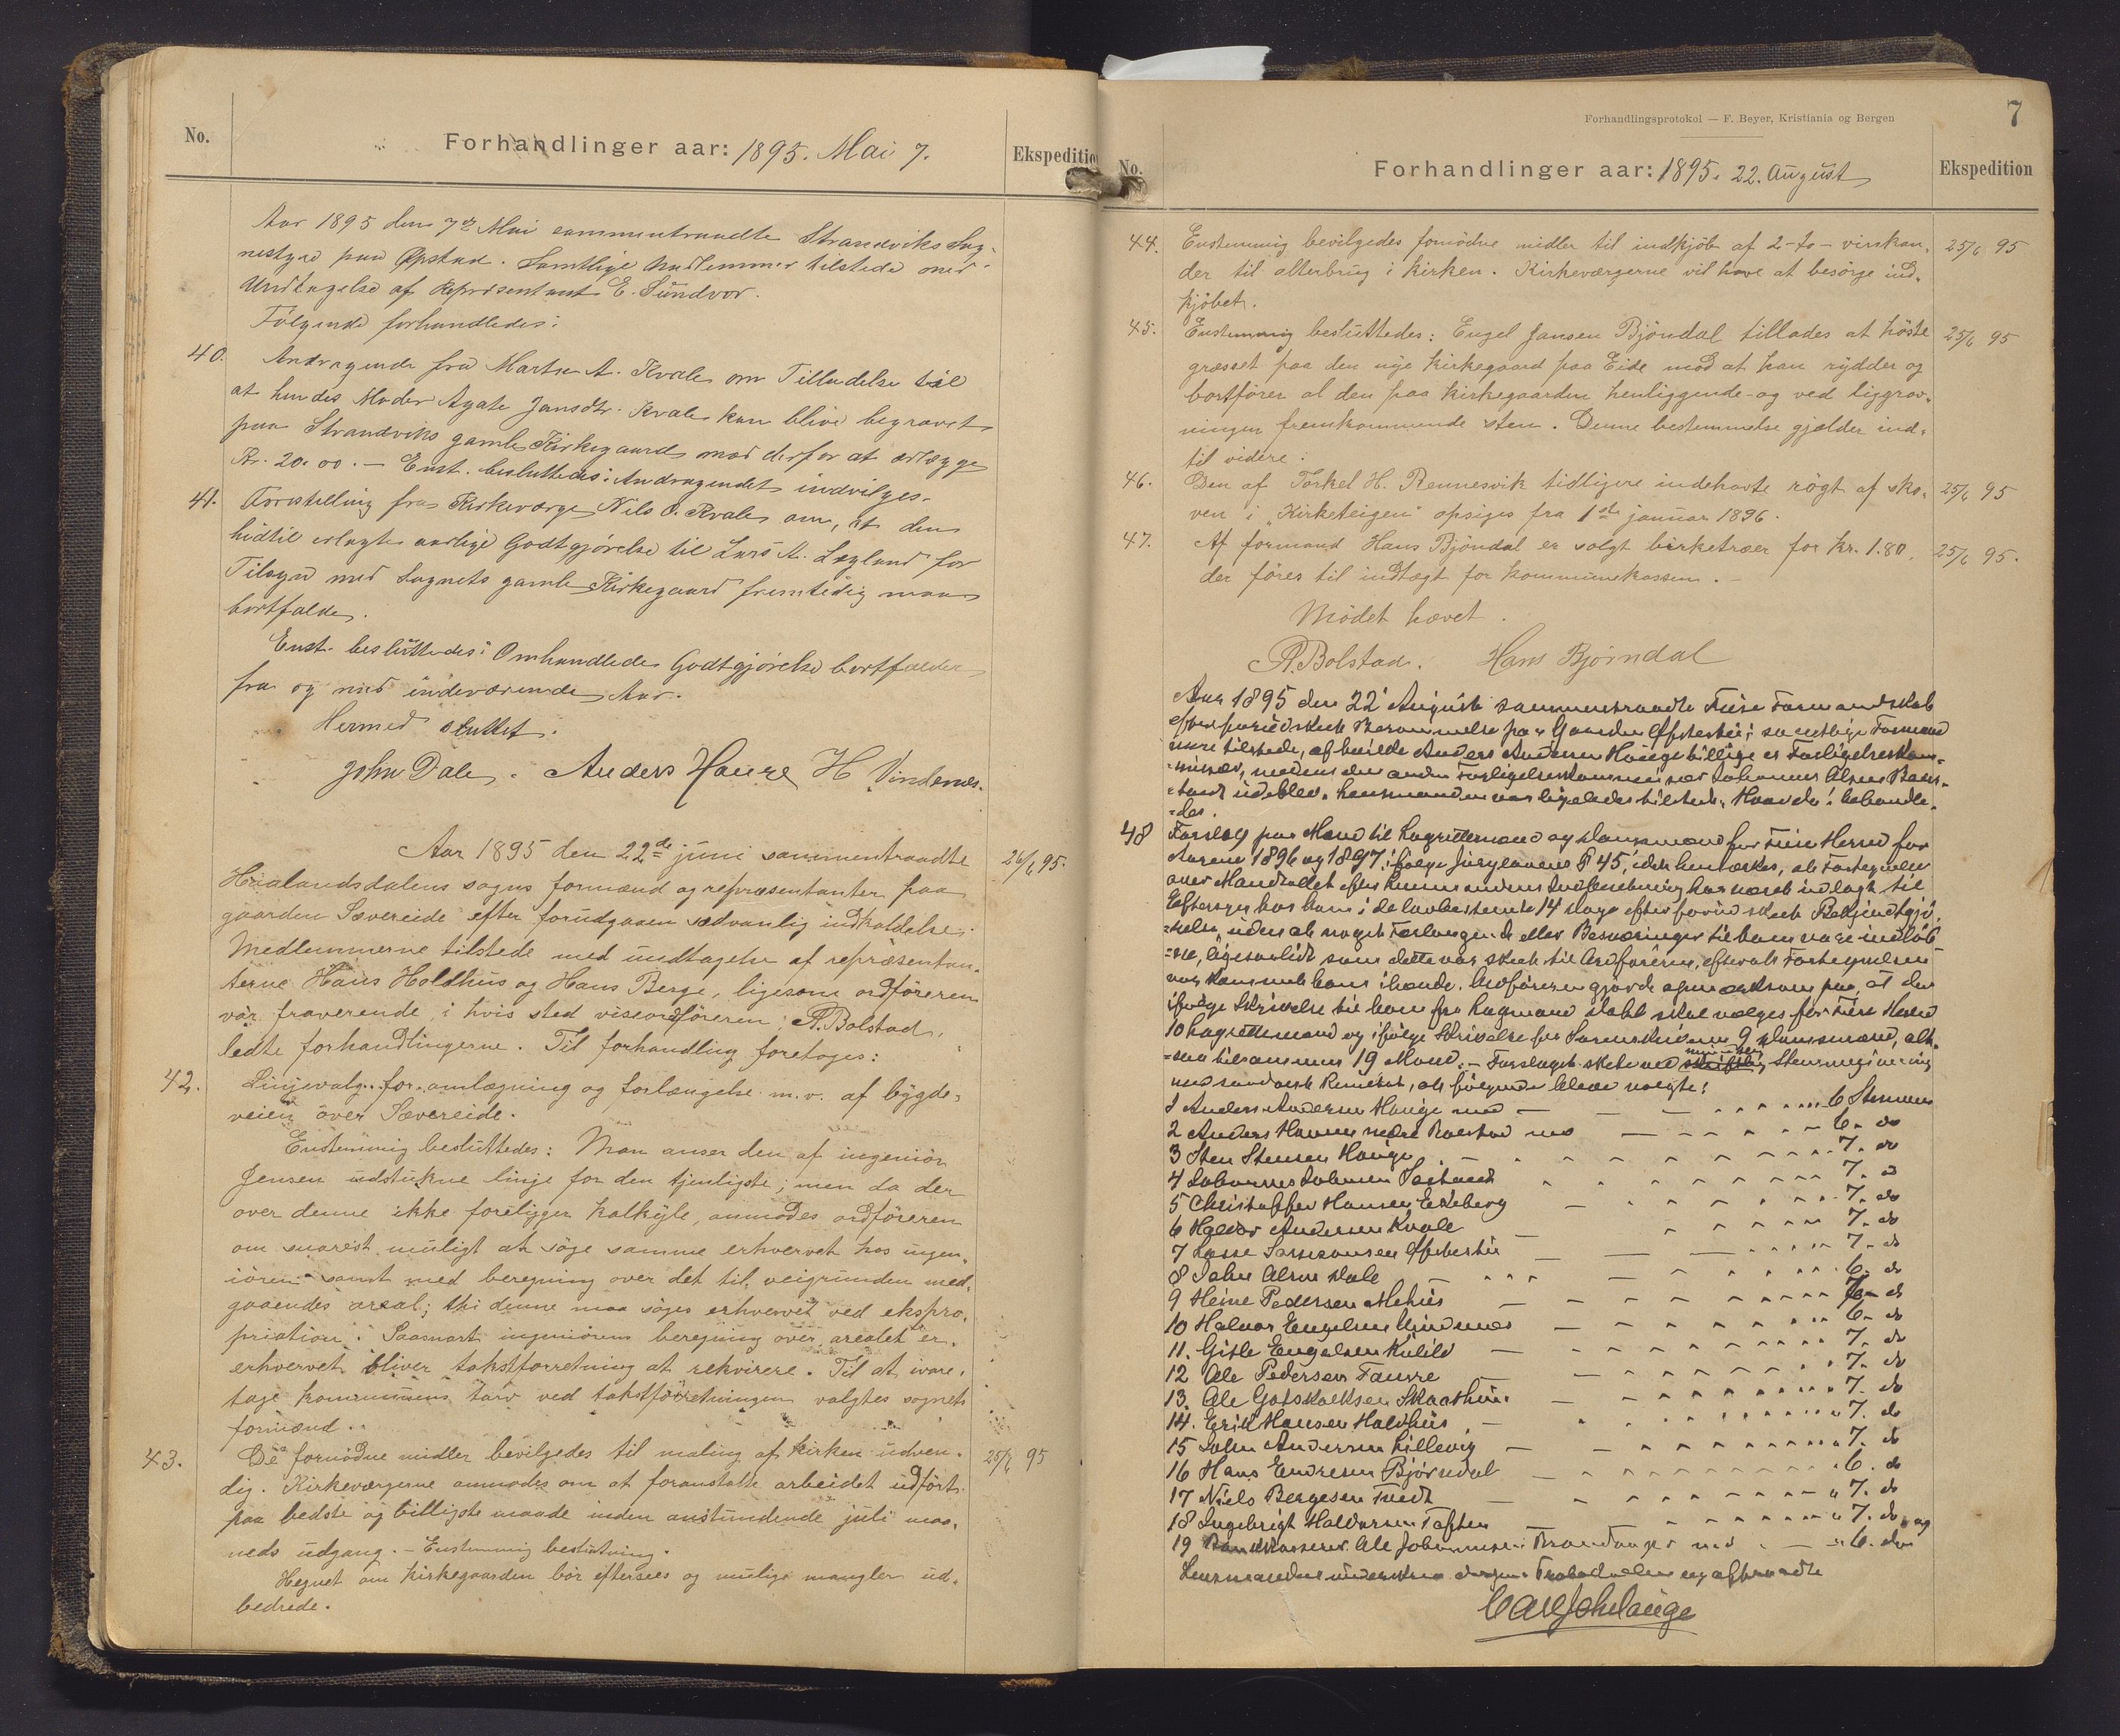 No.
Forhandlinger aar: 1895. Mai 7.
Ekspeditio
Aar 1895 den 7de Mai sammentraadte Strandviks Sog-
nestyre paa Øpstad. Samtlige Medlemmer tilstede med
Undtagelse af Repræsentant E. Sundvor.
Følgende forhandledes:
40. Andragende fra Martha A. Kvale om Tilladelse til
at hendes Moder Agate Jansdtr. Kvale kan blive begravet
paa Strandviks gamle Kirkegaard mod derfor at erlægge
Kr. 20.00. – Enst. besluttedes: Andragendet indvilges.
41. Forestilling fra Kirkeværge Nils O. Kvale om, at den
hidtil erlagte aarlige Godtgjørelse til Lars A. Lygland for
Tilsyn med Sognets gamle Kirkegaard fremtidig maa
bortfalde.
Enst. besluttedes: Omhandlede Godtgjørelse bortfalder
fra og med indeværende Aar.
Hermed sluttet.
John Dale. Anders Haure H. Vindenes.
Aar 1895 den 22de juni sammentraadte 26/6 95.
Haalandsdalens sogns formænd og repræsentanter paa
gaarden Sævereide efter forudgaaen sædvanlig indkaldelse.
Medlemmerne tilstede med undtagelse af repræsentan-
terne Hans Holdhus og Hans Berge, ligesom ordføreren
var fraværende, i hvis sted viseordføreren, A. Bolstad,
ledte forhandlingerne. Til forhandling foretoges:
42. Linjevalg for omlægning og forlængelse m.v. af bygde-
veien over Sævereide.
Enstemmig besluttedes: Man anser den af ingeniør
Jensen udstukne linje for den tjenligste; men da der
over denne ikke foreligger kalkyle, anmodes ordføreren
om snarest muligt at søge samme erhvervet hos ingen-
iøren samt med beregning over det til veigrunden med-
gaaendes areal; thi denne maa søges erhvervet ved ekspro-
priation. Saasnart ingeniørens beregning over arealet er
erhvervet bliver takstforretning at rekvirere. Til at ivare-
tage kommunens tarv ved takstforretningen valgtes sognets
formænd.
43. De fornødne midler bevilgedes til maling af kirken udven- 25/6 95
dig. Kirkeværgerne anmodes om at foranstalte arbeidet udført
paa bedste og billigste maade inden anstundende juli maa-
neds udgang. – Enstemmig beslutning.
Hegnet om kirkegaarden bør eftersees og mulige mangler ud-
bedrede.
7
Forhandlingsprotokol — F. Beyer, Kristiania og Bergen
No.
Forhandlinger aar: 1895. 22. August
Ekspedition
44. Enstemmig bevilgedes fornødne midler til indkjøb af 2 – to – vinkan- 25/6 95
der til alterbrug i kirken. Kirkeværgerne vil have at besørge ind-
kjøbet.
45. Enstemmig besluttedes: Engel Jansen Bjøndal tillades at høste 25/6 95
græsset paa den nye kirkegaard paa Eide mod at han rydder og
bortfører al den paa kirkegaarden henliggende og ved liggrav-
ningen fremkommende sten. Denne bestemmelse gjælder ind-
til videre.
46. Den af Torkel H. Rennesvik tidligere indehavte røgt af sko- 25/6 95
ven i "Kirketeigen" opsiges fra 1ste januar 1896.
47. Af formand Hans Bjøndal er solgt birketræer for kr. 1.80, 25/6 95.
der føres til indtægt for kommunekassen. –
Mødet hævet.
A. Bolstad. Hans Bjørndal
Aar 1895 den 22 August sammentraadte Fuse Formandskab
efter forudskeet Berammelse paa Gaarden Øfstestu; samtlige Formænd
vare tilstede, af hvilke Anders Andersen Hauge tillige er Forligelseskom-
missær, medens den anden Forligelseskommissær Johannes Olsen
udeblev. Lensmanden var ligeledes tilstede. Hvorda: behandle-
des.
48 Forslag paa Mænd til Lagrettemænd og Domsmænd for Fuse Herred for
Aarene 1896 og 1897, ifølge Jurylovens § 45, idet bemærkes, at Fortegnelse
over Mandtallet efter Lensmandens Indberetning har været udlagt til
Eftersyn hos ham i de lovbestemte 14 Dage efter forud skeet Bekjendtgjø-
relse, uden at noget Forlangende eller Besværinger til ham vare indløb-
ne, ligesaalidt som dette var skeet til Ordføreren, efterat Fortegnelsen
var kommet ham ihænde. Ordføreren gjorde opmærksom paa, at der
ifølge Skrivelse til ham fra Lagmand skal vælges for Fuse Herred
10 Lagrettemænd og ifølge Skrivelse fra Sorenskriveren 9 Domsmænd, alt-
saa tilsammen 19 Mænd. – Forslaget skete ved skriftlig Stemmegivning
med saadant Resultat, at følgende bleve valgte:
1 Anders Andersen Hauge med 6 Stemmer
2 Anders Hansen nedre Bolstad med 6. do
3 Sten Stensen Hauge 7. do
4 Johannes Johnsen 7. do
5 Christoffer Hansen Engeberg 7. do
6 Haldor Andersen Kvale 7. do
7 Lasse Øfstestu 7. do
8 John Olsen Dale 6. do
9 Heine Pedersen Mehus do
10 Halvor Engelsen Vindenes 6. do
11. Gitle Engelsen Kilild 7. do
12 Ole Pedersen Haure 7. do
13. Ole Gotskalksen Skaathun 7. do
14. Erik Hansen Holdhus 7. do
15 John Andersen Lillevig 7. do
16 Hans Endresen Bjørndal 6. do
17 Niels Bergesen Tvedt 7. do
18 Ingebrigt Haldorsen Toften 7. do og
19 Ole Johannesen med 6. do